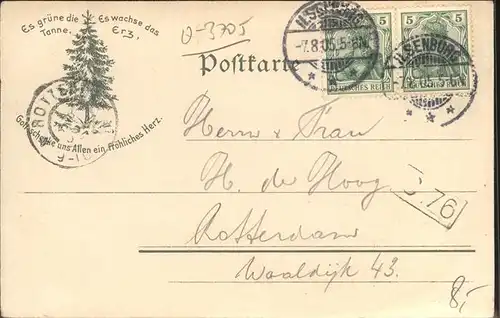 Es grüne die Tanne, Es wachse das Erz,
Gott schenke uns Allen ein fröhliches Herz.
0-3705
Postkarte
ILSENBURG
-7.8.05.5-6N.
5 5
DEUTSCHES REICH
5 5
ILSENBURG
ROTTERDAM
Herrn & Frau
H. de Hoog
Rotterdam
Waaldijk 43.
376
8,-